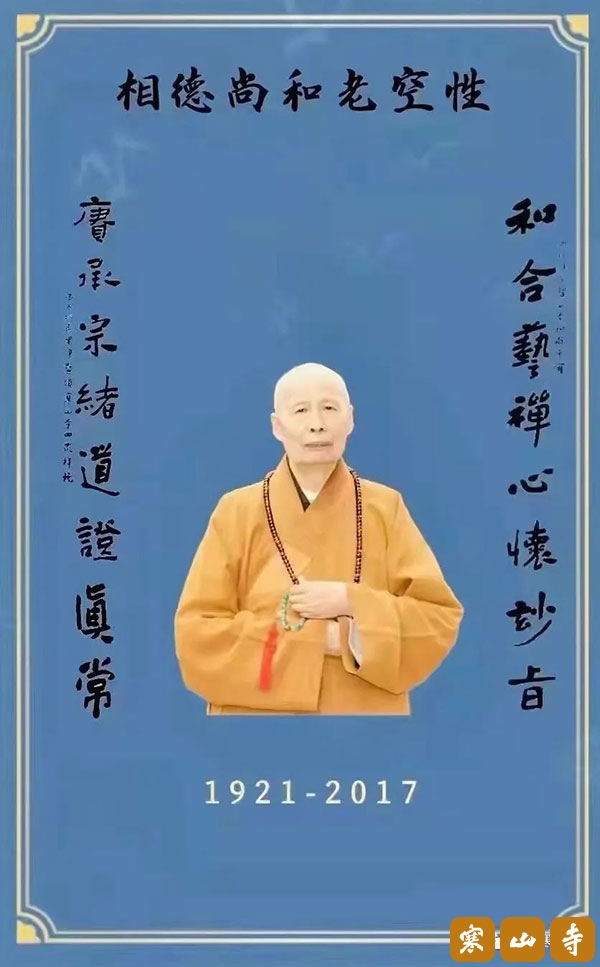 性空老和尚德相
和合藝禪心懷玅旨
賡承宗緒道證眞常
1921-2017
寒山寺